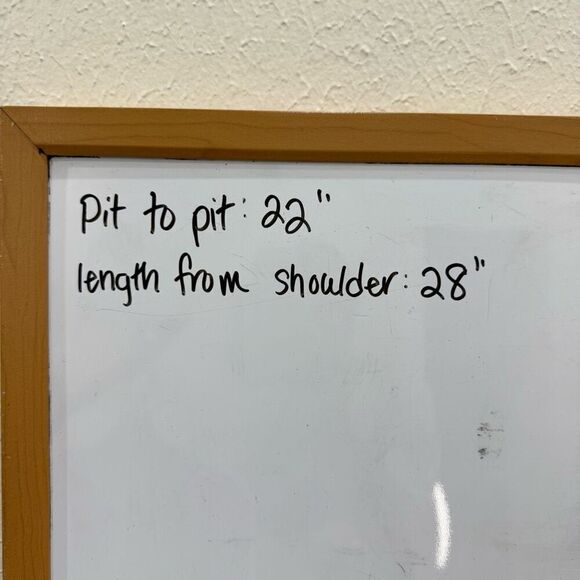 Pit to pit: 22"
length from shoulder: 28"